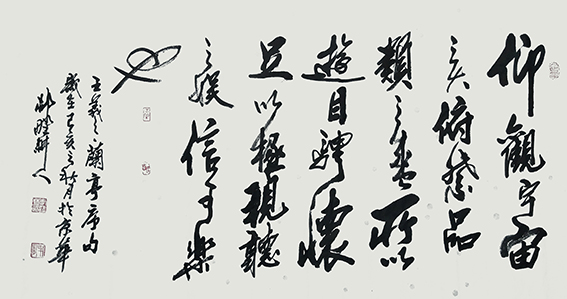 仰觀宇宙
之大俯察品
類之盛所以
遊目騁懷
足以極視聽
之娛信可樂
也
王羲之蘭亭序句
歲在己亥之秋月於京華
耕人